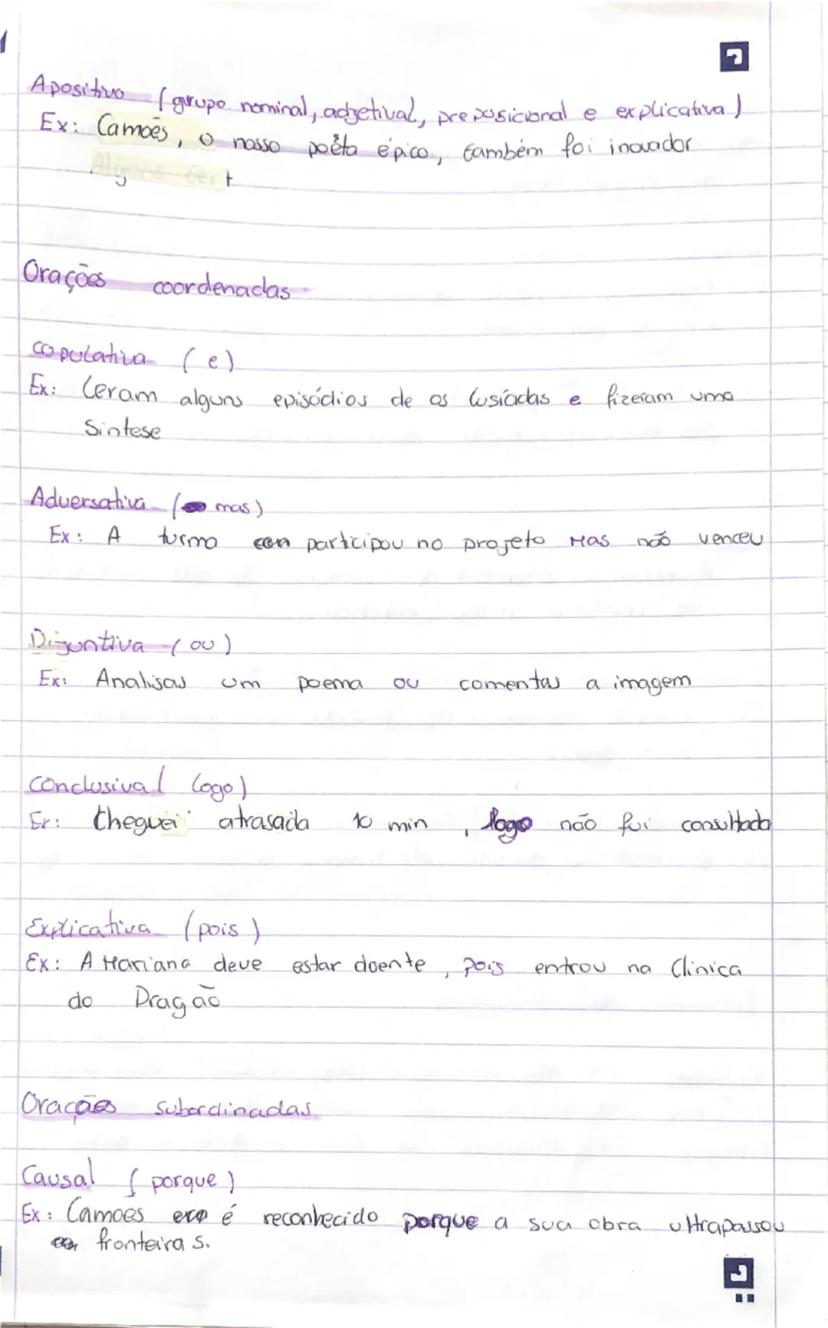 Apositivo (grupo nominal, adjetival, preposicional e explicativa)
Ex: Camões, o nosso poêta épico, também foi inovador
Orações coordenadas
copulativa (e)
Ex: Leram alguns episódios de os lusíadas e fizeram uma
Sintese
Adversativa (mas)
Ex: A turma participou no projeto Mas não venceu
Dijuntiva (ou)
Ex: Analisas um poema ou comentas a imagem
conclusiva (logo)
Ex: Cheguei atrasada 10 min, logo não fui consultada
Explicativa (pois)
Ex: A Mariana deve estar doente, pois entrou na Clinica
do Dragão
Orações subordinadas
Causal (porque)
Ex: Camoes é reconhecido porque a sua obra ultrapassou
fronteiras.